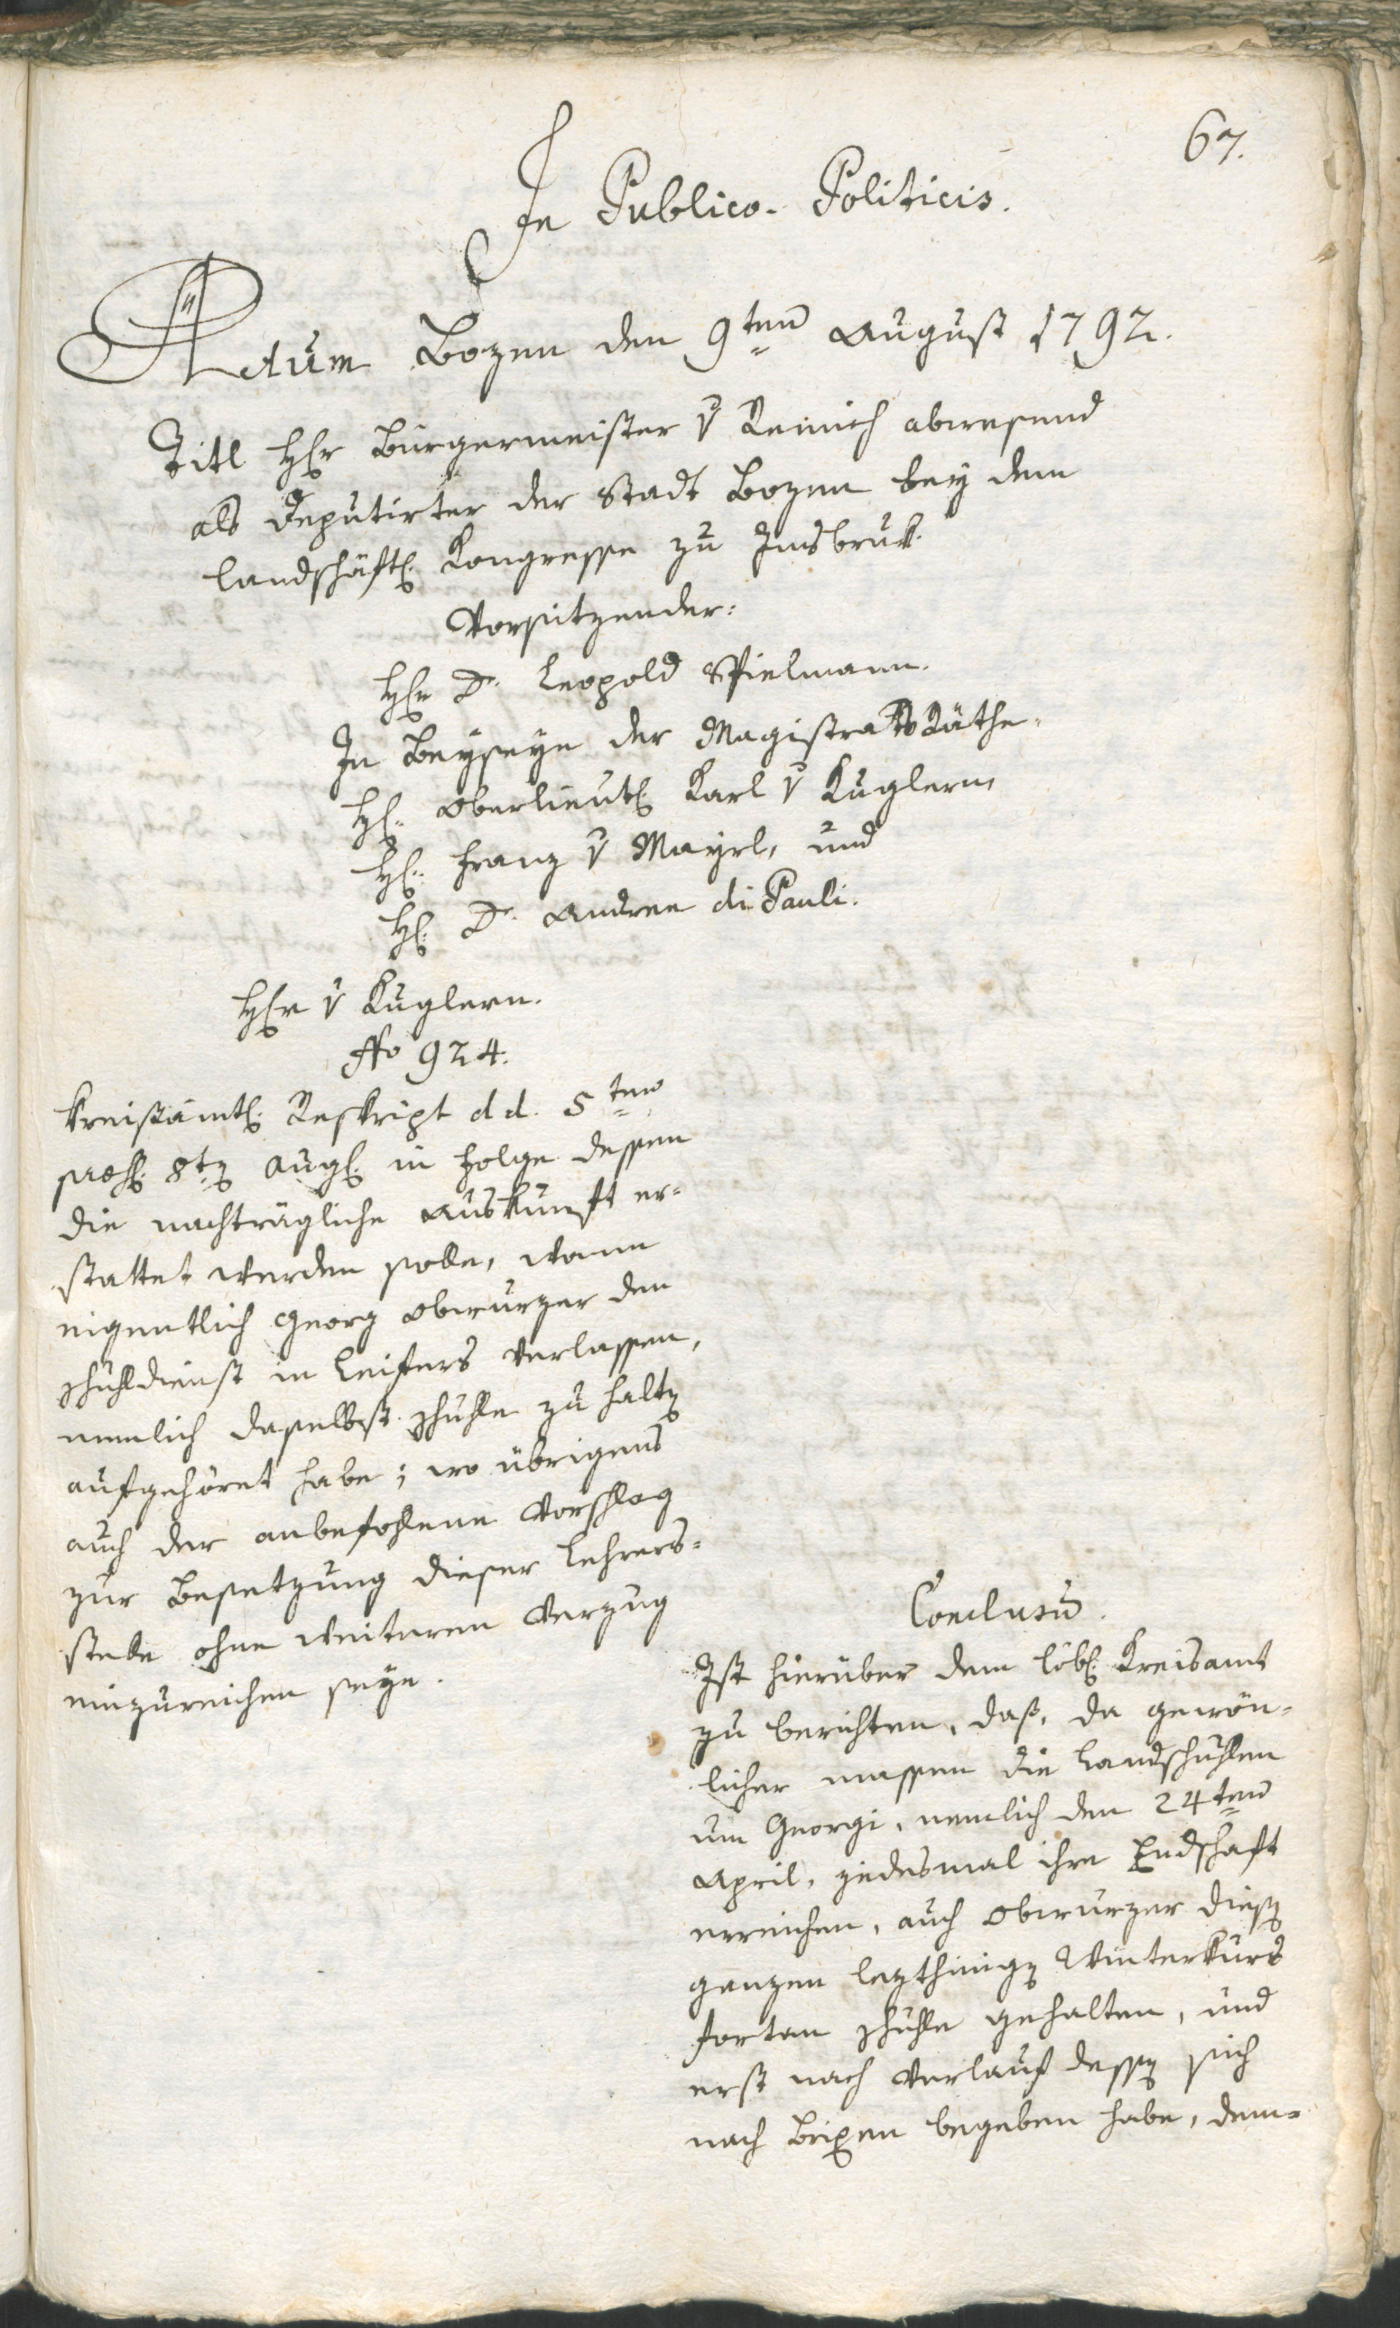 67.
In Publico-Politicis.
Actum Bozen den 9ten August 1792.
Titl Herr Bürgermeister v Remich abwesend
als Deputirter der Stadt Bozen bey dem
landschäftl. Kongresse zu Insbruk.
Vorsitzender:
Herr Dr. Leopold Spielmann.
In Beyseyn der Magistrats Räthe.
H. Oberlieut. Karl v Kuglern,
H. Franz v Mayrl, und
H. Dr. Andree di Pauli.
Herr v Kuglern.
No 924.
Kreisämtl. Reskript dd. 5ten
pres. 8ten Aug. in Folge dessen
die nachträgliche Auskunft er=
stattet werden solle, wann
eigentlich Georg Obwurzer den
Schuldienst in Leifers verlassen,
nemlich daselbst Schulle zu halten
aufgehöret habe; wo übrigens
auch der anbefohlene Vorschlag
zur Besetzung dieser Lehrers=
stelle ohne weiteren Verzug
einzureichen seye.
Conclusum.
Ist hierüber dem löbl. Kreisamt
zu berichten, daß, da gewön=
licher massen die Landschullen
um Georgi, nemlich den 24ten
April, jedesmal ihre Endschaft
erreichen, auch Obwurzer diesen
ganzen lezthinigen Winterkurs
fortan Schulle gehalten, und
erst nach Verlauf dessen sich
nach Brixen begeben habe, dem=